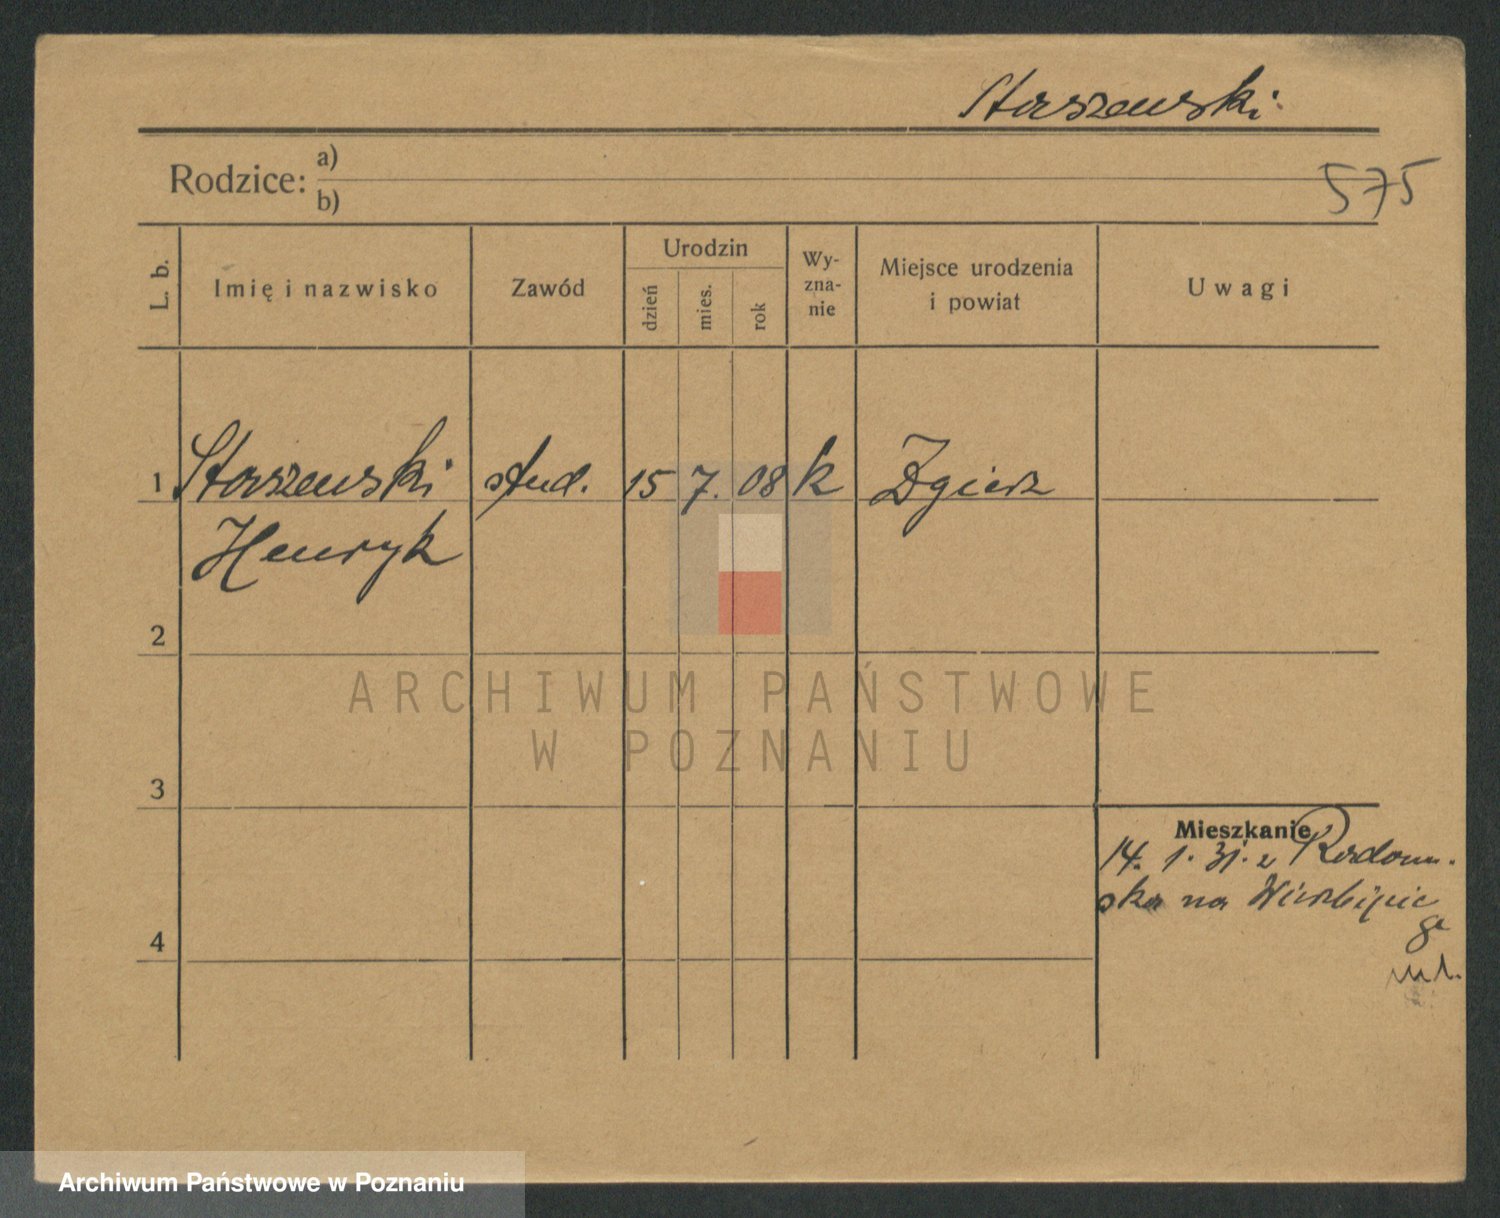 Staszewski
Rodzice: a)
b)
575
L. b.
Imię i nazwisko
Zawód
Urodzin
dzień
mies.
rok
Wy-
zna-
nie
Miejsce urodzenia
i powiat
Uwagi
1 Staszewski stud. 15 7. 08 k Zgierz
Henryk
2
ARCHIWUM PAŃSTWOWE
W POZNANIU
3
Mieszkanie
14. 1. 31. z Radom-
ska na
4
Archiwum Państwowe w Poznaniu